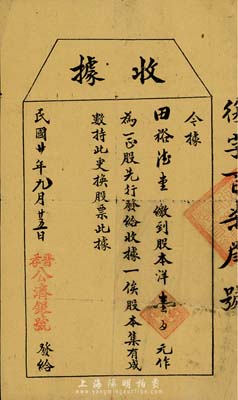 收據
今據
田裕德堂 繳到股本洋壹百元作
為一正股先行發給收據一俟股本集有成
數持此更換股票此據
民國廿年九月廿五日
公濟銀號 發給
上海陽明拍賣